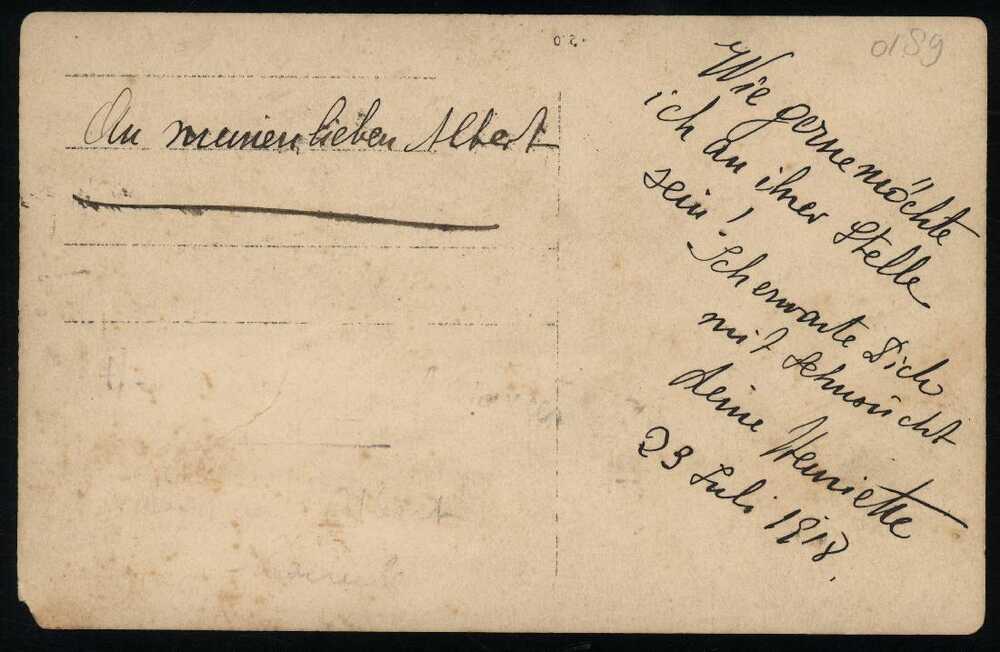 An meinen lieben Albert
Wie gerne möchte
ich an ihrer Stelle
sein! Ich erwarte Dich
mit Sehnsucht
Deine Henriette
23 Juli 1918.
0159